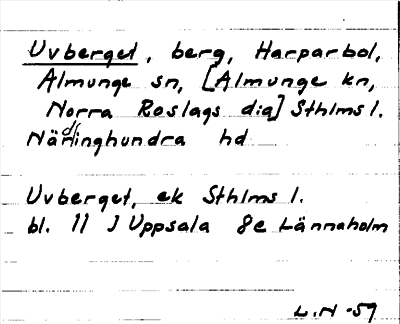 Uvberget, berg, Harparbol,
Almunge sn, [Almunge kn,
Norra Roslags dia] Sthlms l.
Närdinghundra hd
Uvberget, ek Sthlms l.
bl. 11 J Uppsala 8e Lännaholm
L.N -59